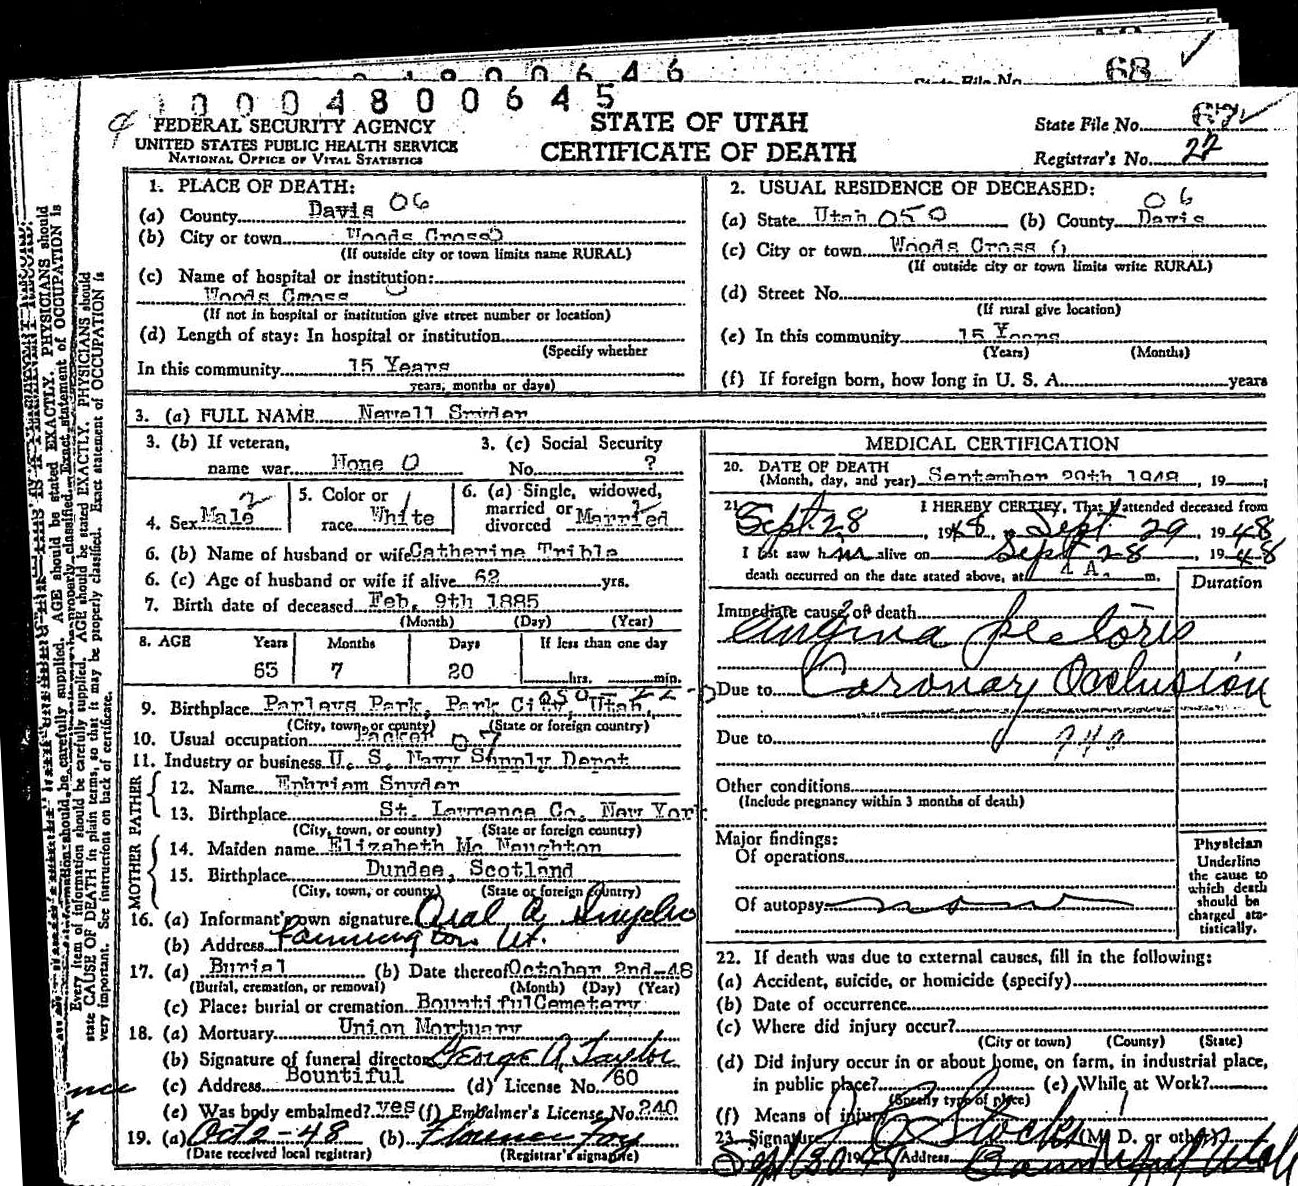 1 0 0 0 4 8 0 0 6 4 6
State File No. 68 ✓
1 0 0 0 4 8 0 0 6 4 5
FEDERAL SECURITY AGENCY
UNITED STATES PUBLIC HEALTH SERVICE
NATIONAL OFFICE OF VITAL STATISTICS
STATE OF UTAH
CERTIFICATE OF DEATH
State File No.
Registrar's No. 22
1. PLACE OF DEATH:
(a) County Davis 06
(b) City or town Woods Cross
(If outside city or town limits name RURAL)
(c) Name of hospital or institution:
Woods Cross
(If not in hospital or institution give street number or location)
(d) Length of stay: In hospital or institution
(Specify whether
In this community 15 Years
years, months or days)
2. USUAL RESIDENCE OF DECEASED:
06
(a) State Utah 050 (b) County Davis
(c) City or town Woods Cross 0
(If outside city or town limits write RURAL)
(d) Street No.
(If rural give location)
(e) In this community 15 Years
(Years) (Months)
(f) If foreign born, how long in U. S. A. years
3. (a) FULL NAME Newell Snyder
3. (b) If veteran, name war None 0
3. (c) Social Security No. ?
4. Sex Male 2
5. Color or race White 1
6. (a) Single, widowed, married or divorced Married
6. (b) Name of husband or wife Catherine Trible
6. (c) Age of husband or wife if alive 62 yrs.
7. Birth date of deceased Feb. 9th 1885
(Month) (Day) (Year)
8. AGE Years Months Days If less than one day
63 7 20 hrs. min.
050 - 22 -
9. Birthplace Parleys Park, Park City, Utah.
(City, town, or county) (State or foreign country)
10. Usual occupation Packer 07
11. Industry or business U. S. Navy Supply Depot
FATHER
12. Name Ephriam Snyder
13. Birthplace St. Lawrence Co. New York
(City, town, or county) (State or foreign country)
MOTHER
14. Maiden name Elizabeth Mc Naughton
15. Birthplace Dundee, Scotland
(City, town, or county) (State or foreign country)
16. (a) Informant's own signature Oral A Snyder
(b) Address Farmington Ut.
17. (a) Burial (b) Date thereof October 2nd-48
(Burial, cremation, or removal) (Month) (Day) (Year)
(c) Place: burial or cremation Bountiful Cemetery
18. (a) Mortuary Union Mortuary
(b) Signature of funeral director George A. Taylor
(c) Address Bountiful (d) License No. 160
(e) Was body embalmed? yes (f) Embalmer's License No. 240
19. (a) Oct 2-48 (b) Florence Foy
(Date received local registrar) (Registrar's signature)
MEDICAL CERTIFICATION
20. DATE OF DEATH
(Month, day, and year) September 29th 1948, 19 ;
21. I HEREBY CERTIFY, That I attended deceased from
Sept. 28, 1948, Sept 29 1948
I last saw him alive on Sept 28 1948
death occurred on the date stated above, at 4 A. m.
Duration
Immediate cause of death
Angina pectoris
Due to Coronary Occlusion
Due to 940
Other conditions
(Include pregnancy within 3 months of death)
Major findings:
Of operations
Of autopsy none
Physician
Underline
the cause to
which death
should be
charged sta-
tistically.
22. If death was due to external causes, fill in the following:
(a) Accident, suicide, or homicide (specify)
(b) Date of occurrence
(c) Where did injury occur?
(City or town) (County) (State)
(d) Did injury occur in or about home, on farm, in industrial place,
in public place? (e) While at Work?
(Specify type of place)
(f) Means of injury
23. Signature Stocks (M. D. or other)
Sept 30 1948 Address Bountiful Utah